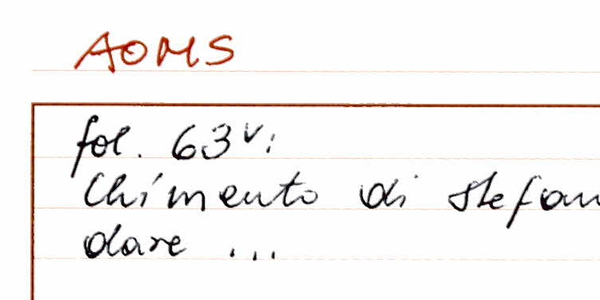 AOMS
fol. 63v:
Chimento di stefan
dare ...